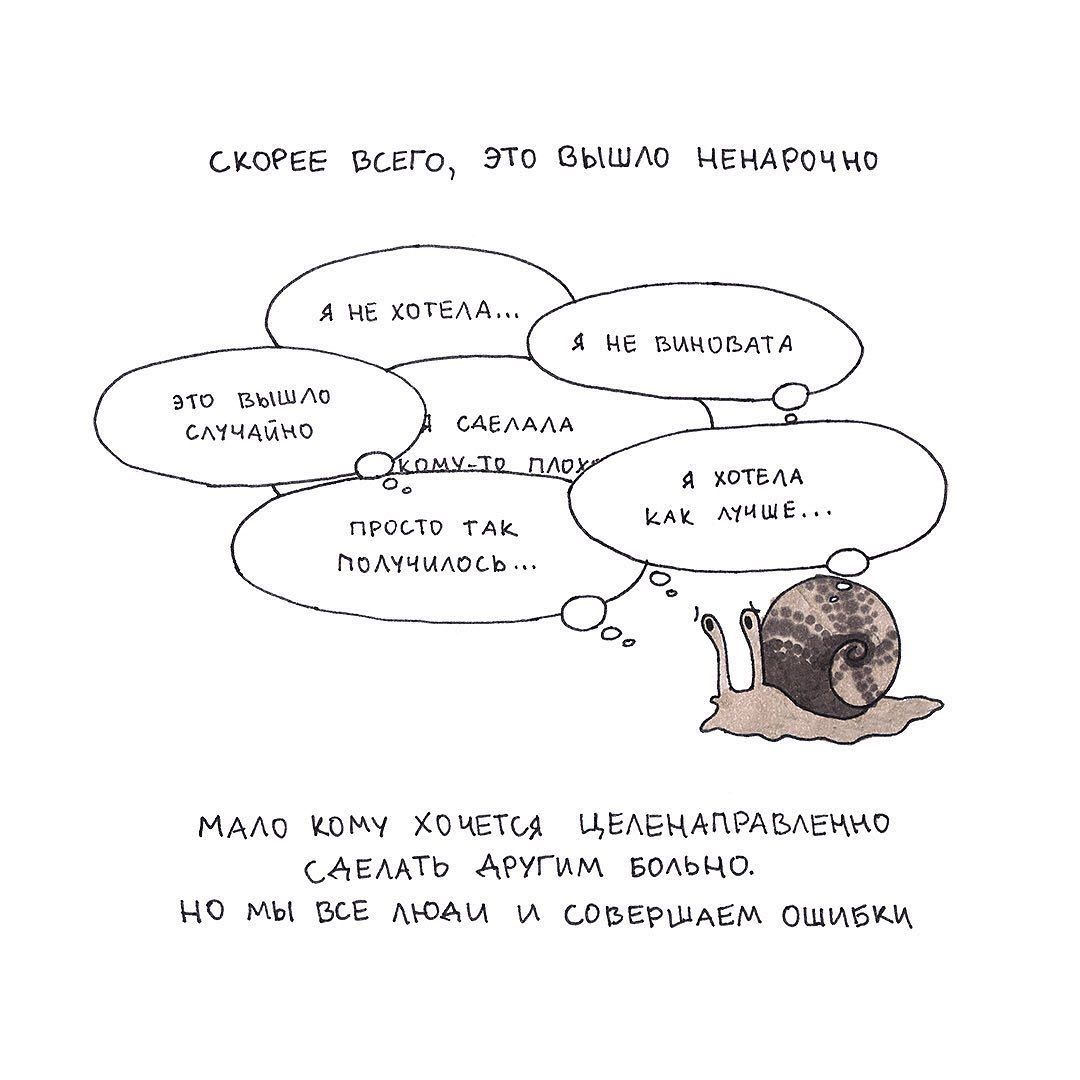 СКОРЕЕ ВСЕГО, ЭТО ВЫШЛО НЕНАРОЧНО
Я НЕ ХОТЕЛА...
Я НЕ ВИНОВАТА
ЭТО ВЫШЛО
СЛУЧАЙНО
Я СДЕЛАЛА
КОМУ-ТО
Я ХОТЕЛА
КАК ЛУЧШЕ...
ПРОСТО ТАК
ПОЛУЧИЛОСЬ...
МАЛО КОМУ ХОЧЕТСЯ ЦЕЛЕНАПРАВЛЕННО
СДЕЛАТЬ ДРУГИМ БОЛЬНО.
НО МЫ ВСЕ ЛЮДИ И СОВЕРШАЕМ ОШИБКИ